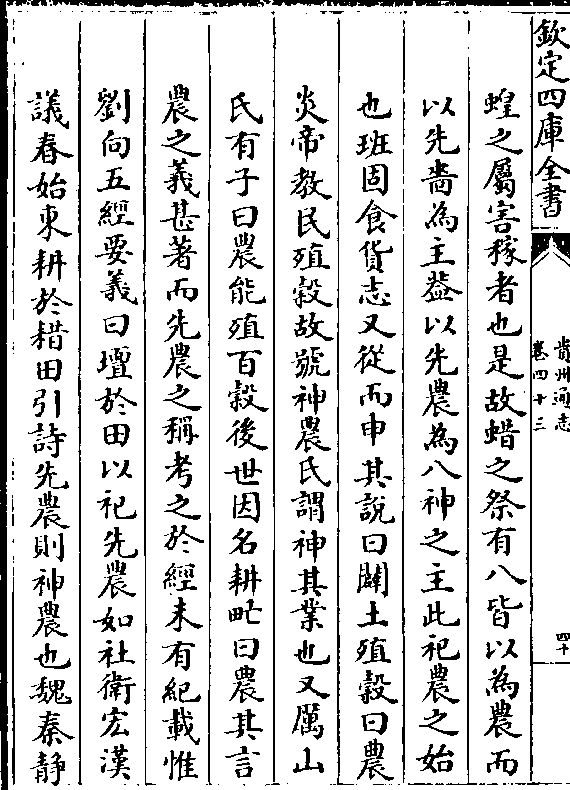 欽定四庫全書
貴州通志
卷四十三
四十
蝗之屬害稼者也是故蜡之祭有八皆以為農而
以先嗇為主葢以先農為八神之主此祀農之始
也班固食貨志又從而申其說曰闢土殖穀曰農
炎帝教民殖穀故號神農氏謂神其業也又厲山
氏有子曰農能殖百穀後世因名耕甿曰農其言
農之義甚著而先農之稱考之於經未有紀載惟
劉向五經要義曰壇於田以祀先農如社衛宏漢
議春始東耕於耤田引詩先農則神農也魏秦静